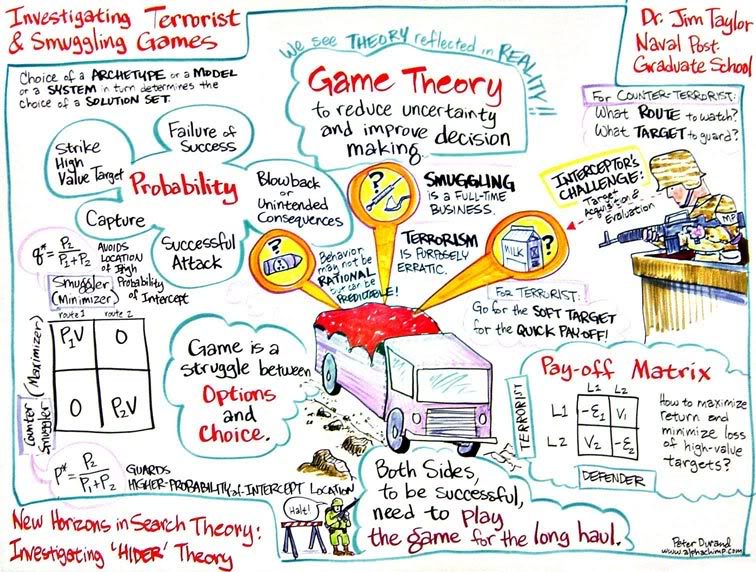 Investigating Terrorist
& Smuggling Games
Dr. Jim Taylor
Naval Post
Graduate School
Choice of a ARCHETYPE or a MODEL
or a SYSTEM in turn determines the
choice of a SOLUTION SET.
We see THEORY reflected in REALITY!!
Game Theory
to reduce uncertainty
and improve decision
making.
For COUNTER-TERRORIST:
What ROUTE to watch?
What TARGET to guard?
Strike
High
Value Target
Failure of
Success
Probability
Blowback
or
Unintended
Consequences
Capture
Successful
Attack
?
SMUGGLING
is a FULL-TIME
BUSINESS.
INTERCEPTOR'S
CHALLENGE:
Target
Acquisition &
Evaluation
MP
?
Behavior
may not be
RATIONAL
but can be
PREDICTABLE!
TERRORISM
is PURPOSELY
ERRATIC.
MILK
?
q* = P2 / P1 + P2
AVOIDS
LOCATION
of High
Probability
of Intercept
Smuggler
(Minimizer)
route 1
route 2
Counter Smuggler (Maximizer)
P1V
0
0
P2V
For TERRORIST:
Go for the SOFT TARGET
for the QUICK PAY-OFF!
Game is a
struggle between
Options
and
Choice.
Pay-off Matrix
TERRORIST
L1
L2
L1
-ε1
V1
L2
V2
-ε2
DEFENDER
How to maximize
return and
minimize loss
of high-value
targets?
P* = P2 / P1 + P2
GUARDS
HIGHER-PROBABILITY-of-INTERCEPT LOCATION
Halt!
Both Sides,
to be successful,
need to play
the game for the long haul.
New Horizons in Search Theory:
Investigating 'HIDER' Theory
Peter Durand
www.alphachimp.com